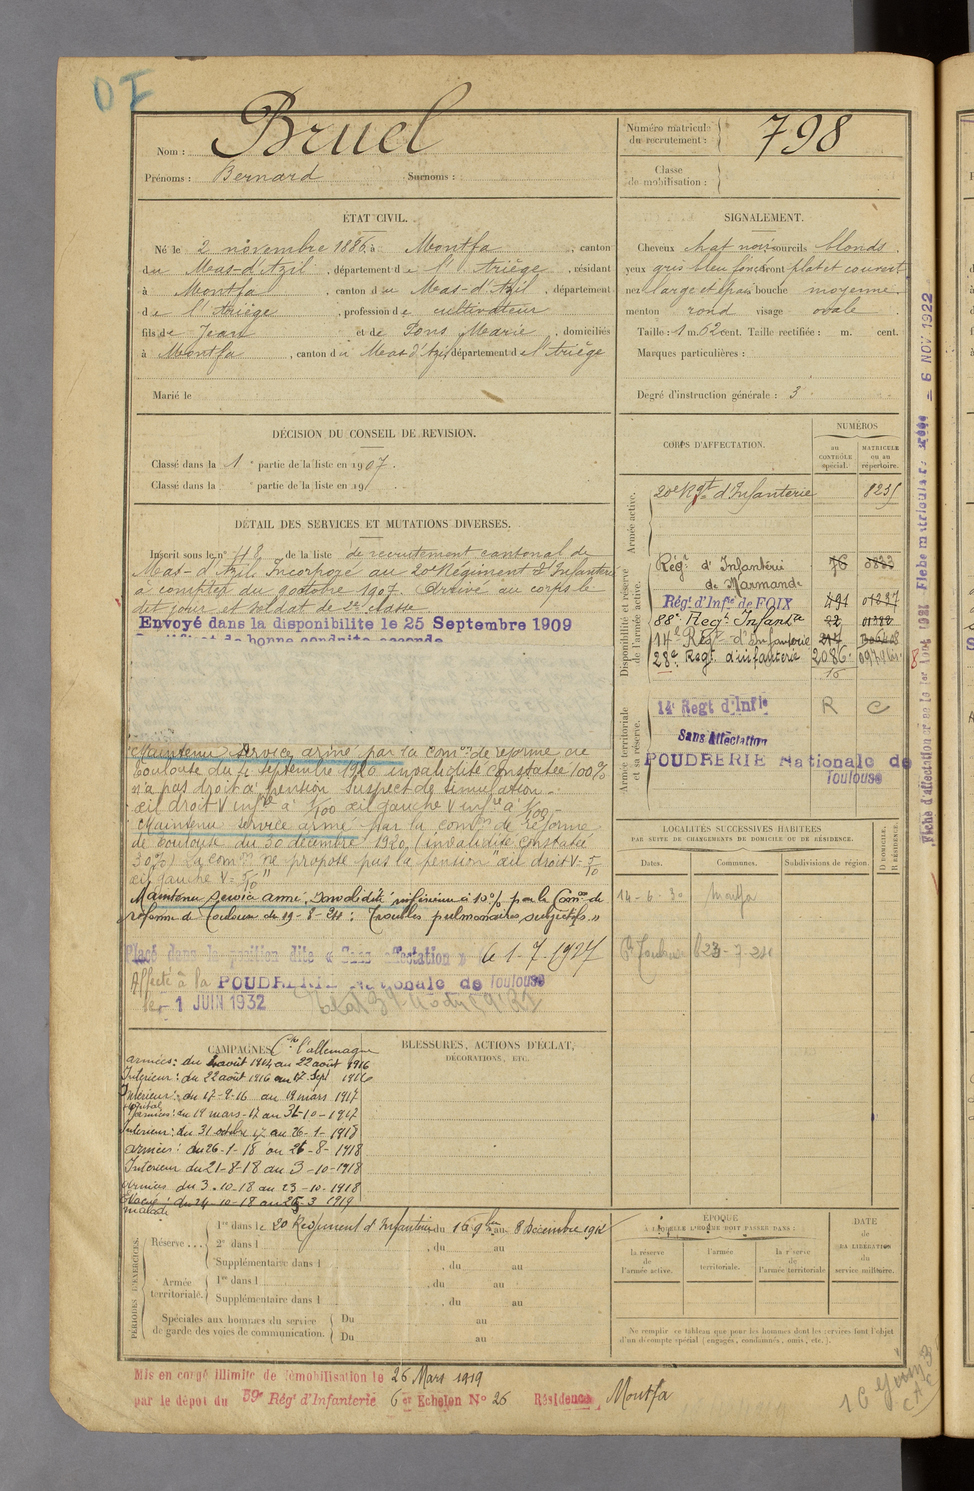 Nom : Bruel
Prénoms : Bernard Surnoms :
Numéro matricule du recrutement : 798
Classe de mobilisation :
ÉTAT CIVIL.
Né le 2 novembre 1886 à Montfa , canton
du Mas-d'Azil , département de l'Ariège , résidant
à Montfa , canton du Mas-d'Azil , département
de l'Ariège , profession de cultivateur
fils de Jean et de Pons Marie , domiciliés
à Montfa , canton du Mas d'Azil département de l'Ariège
Marié le
SIGNALEMENT.
Cheveux chat noir sourcils blonds
yeux gris bleu foncé front plat et couvert
nez large et épais bouche moyenne
menton rond visage ovale
Taille : 1 m. 62 cent. Taille rectifiée : m. cent.
Marques particulières :
Degré d'instruction générale : 3
DÉCISION DU CONSEIL DE REVISION.
Classé dans la 1e partie de la liste en 1907.
Classé dans la partie de la liste en 19
DÉTAIL DES SERVICES ET MUTATIONS DIVERSES.
Inscrit sous le n° 48 de la liste de recrutement cantonal de
Mas-d'Azil. Incorporé au 20e Régiment d'Infanterie
à compter du octobre 1907. Arrivé au corps le
dit jour et soldat de 2e classe
Envoyé dans la disponibilite le 25 Septembre 1909
de bonne conduite accordé
Maintenu service armé par la comon de réforme de
Toulouse du septembre 1920 invalidité constatée 100%
n'a pas droit à pension suspect de simulation -
œil droit V infre à 1/100 œil gauche V infre à 1/100 -
Maintenu service armé par la comon de réforme
de Toulouse du 30 décembre 1920 (invalidité constatée
30%) La comon ne propose pas la pension "œil droit V = 5/10
œil gauche V = 5/10"
Maintenu service armé, Invalidité inférieure à 10% par la Comon de
réforme de Toulouse du 19-8-24 : Troubles pulmonaires subjectifs »
Placé dans la position dite « Sans affectation » le 1-7-1927
Affecté à la POUDRERIE Nationale de Toulouse
le - 1 JUIN 1932
CORPS D'AFFECTATION.
NUMÉROS
au CONTRÔLE spécial.
MATRICULE ou au répertoire.
Armée active.
20e Rgt d'Infanterie
Disponibilité et réserve de l'armée active.
Régt d'Infanterie de Marmande 76
Régt d'Infie de FOIX 491 01237
88e Regt Infanterie 22 01382
14e Regt d'Infanterie
28e Regt d'infanterie 2086
Armée territoriale et sa réserve.
14e Regt d'Infie R C
Sans Affectation
POUDRERIE Nationale de
Toulouse
- 6 NOV 1922
LOCALITÉS SUCCESSIVES HABITÉES
PAR SUITE DE CHANGEMENTS DE DOMICILE OU DE RÉSIDENCE.
Dates. Communes. Subdivisions de région. D DOMICILE, R RÉSIDENCE.
14-6-30 Montfa
23-7-24
CAMPAGNES Cte l'allemagne
armées : du août 1914 au 22 août 1916
Intérieur : du 22 août 1916 au 17 Sept 1916
Intérieur : du 17-9-16 au 19 mars 1917
armées : du 19 mars-17 au 31-10-1917
Interieur : du 31 octobre 17 au 26-1-1918
armées : du 26-1-18 au 21-8-1918
Interieur du 21-8-18 au 3-10-1918
Armées du 3-10-18 au 23-10-1918
Evacué malade : du 24-10-18 au 25-3 1919
BLESSURES, ACTIONS D'ÉCLAT,
DÉCORATIONS, ETC.
PÉRIODES D'EXERCICES.
Réserve ... 1re dans le 20 Régiment d'Infanterie du 16 9bre au 8 Décembre 1912
2e dans l , du au
Supplémentaire dans l , du au
Armée territoriale. 1re dans l , du au
Supplémentaire dans l , du au
Spéciales aux hommes du service de garde des voies de communication. Du au
Du au
ÉPOQUE
À LAQUELLE L'HOMME DOIT PASSER DANS :
la réserve de l'armée active.
l'armée territoriale.
la réserve de l'armée territoriale
DATE DE LA LIBÉRATION du service militaire.
Ne remplir ce tableau que pour les hommes dont les services font l'objet
d'un décompte spécial (engagés, condamnés, omis, etc.).
Mis en congé illimité de démobilisation le 26 Mars 1919
par le dépôt du 59e Régt d'Infanterie 6er Echelon N° 26 Résidence Montfa